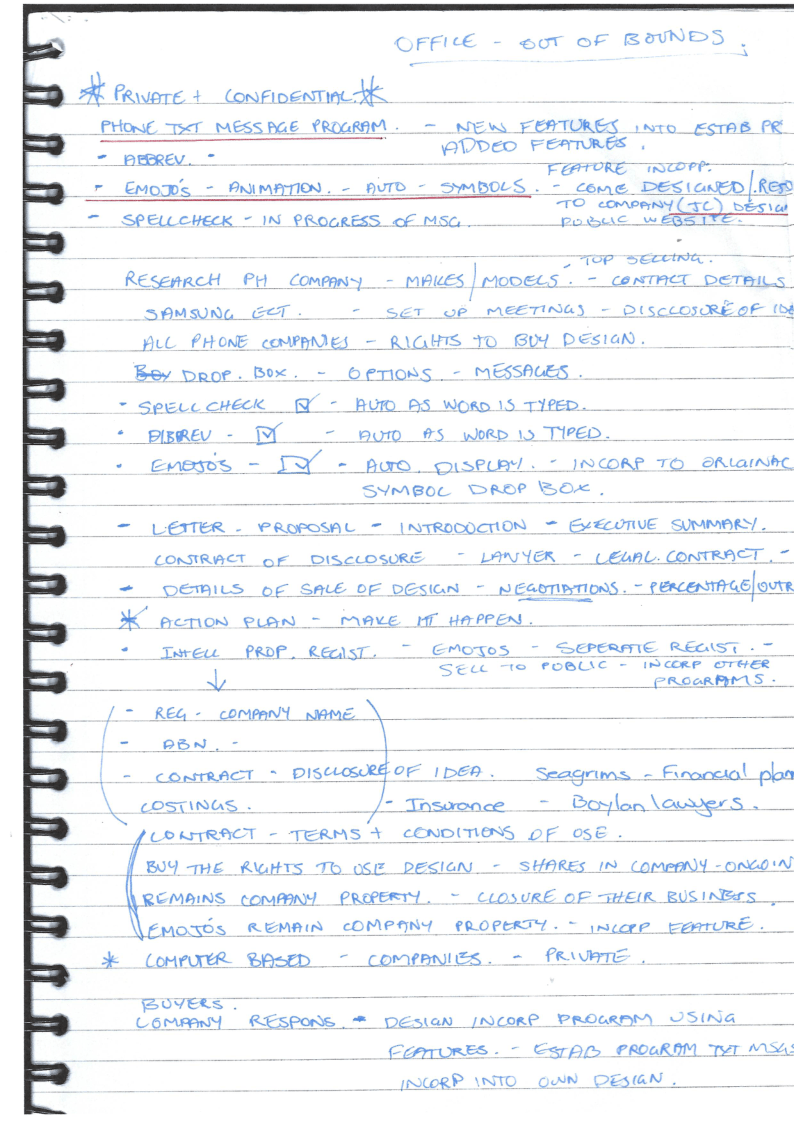 OFFICE - OUT OF BOUNDS.
* PRIVATE + CONFIDENTIAL. *
PHONE TXT MESSAGE PROGRAM. - NEW FEATURES INTO ESTAB PR
ADDED FEATURES.
- ABBREV. -
FEATURE INCOPP.
- EMOJO'S - ANIMATION. - AUTO - SYMBOLS. - COME DESIGNED/RESD
TO COMPANY (JC) DESIGN
- SPELLCHECK - IN PROGRESS OF MSG. PUBLIC WEBSITE.
- TOP SELLING.
RESEARCH PH COMPANY - MAKES/MODELS. - CONTACT DETAILS
SAMSUNG ECT. - SET UP MEETINGS - DISCLOSURE OF IDE
ALL PHONE COMPANIES - RIGHTS TO BUY DESIGN.
DROP. BOX. - OPTIONS - MESSAGES.
- SPELLCHECK ☑ - AUTO AS WORD IS TYPED.
• ABBREV - ☑ - AUTO AS WORD IS TYPED.
• EMOJO'S - ☑ - AUTO. DISPLAY. - INCORP TO ORIGINAL
SYMBOL DROP BOX.
- LETTER - PROPOSAL - INTRODUCTION - EXECUTIVE SUMMARY.
CONTRACT OF DISCLOSURE - LAWYER - LEGAL. CONTRACT. -
- DETAILS OF SALE OF DESIGN - NEGOTIATIONS. - PERCENTAGE/OUTR
* ACTION PLAN - MAKE IT HAPPEN.
• INTELL PROP. REGIST. - EMOJOS - SEPERATE REGIST. -
SELL TO PUBLIC - INCORP OTHER
PROGRAMS.
- REG - COMPANY NAME
- ABN. -
- CONTRACT - DISCLOSURE OF IDEA. Seagrims - Financial plan
COSTINGS. - Insurance - Boylan lawyers.
CONTRACT - TERMS + CONDITIONS OF USE.
BUY THE RIGHTS TO USE DESIGN - SHARES IN COMPANY - ONGOIN
REMAINS COMPANY PROPERTY. - CLOSURE OF THEIR BUSINESS.
EMOJO'S REMAIN COMPANY PROPERTY. - INCOPP FEATURE.
* COMPUTER BASED - COMPANIES. - PRIVATE.
BUYERS.
COMPANY RESPONS. - DESIGN INCORP PROGRAM USING
FEATURES. - ESTAB PROGRAM TXT MSGS
INCORP INTO OWN DESIGN.